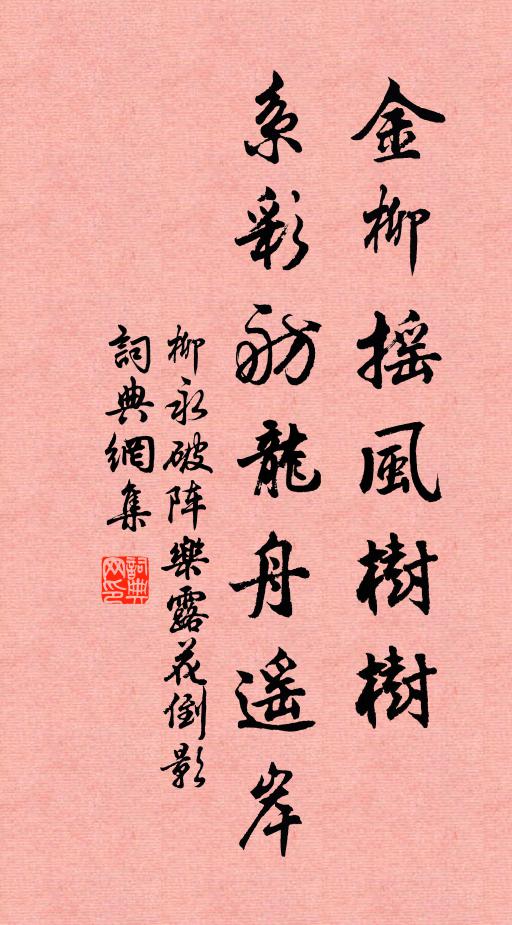 金柳摇風樹樹
系彩舫龍舟遥岸
柳永破阵樂露花倒影
詞典網集
詞典网印